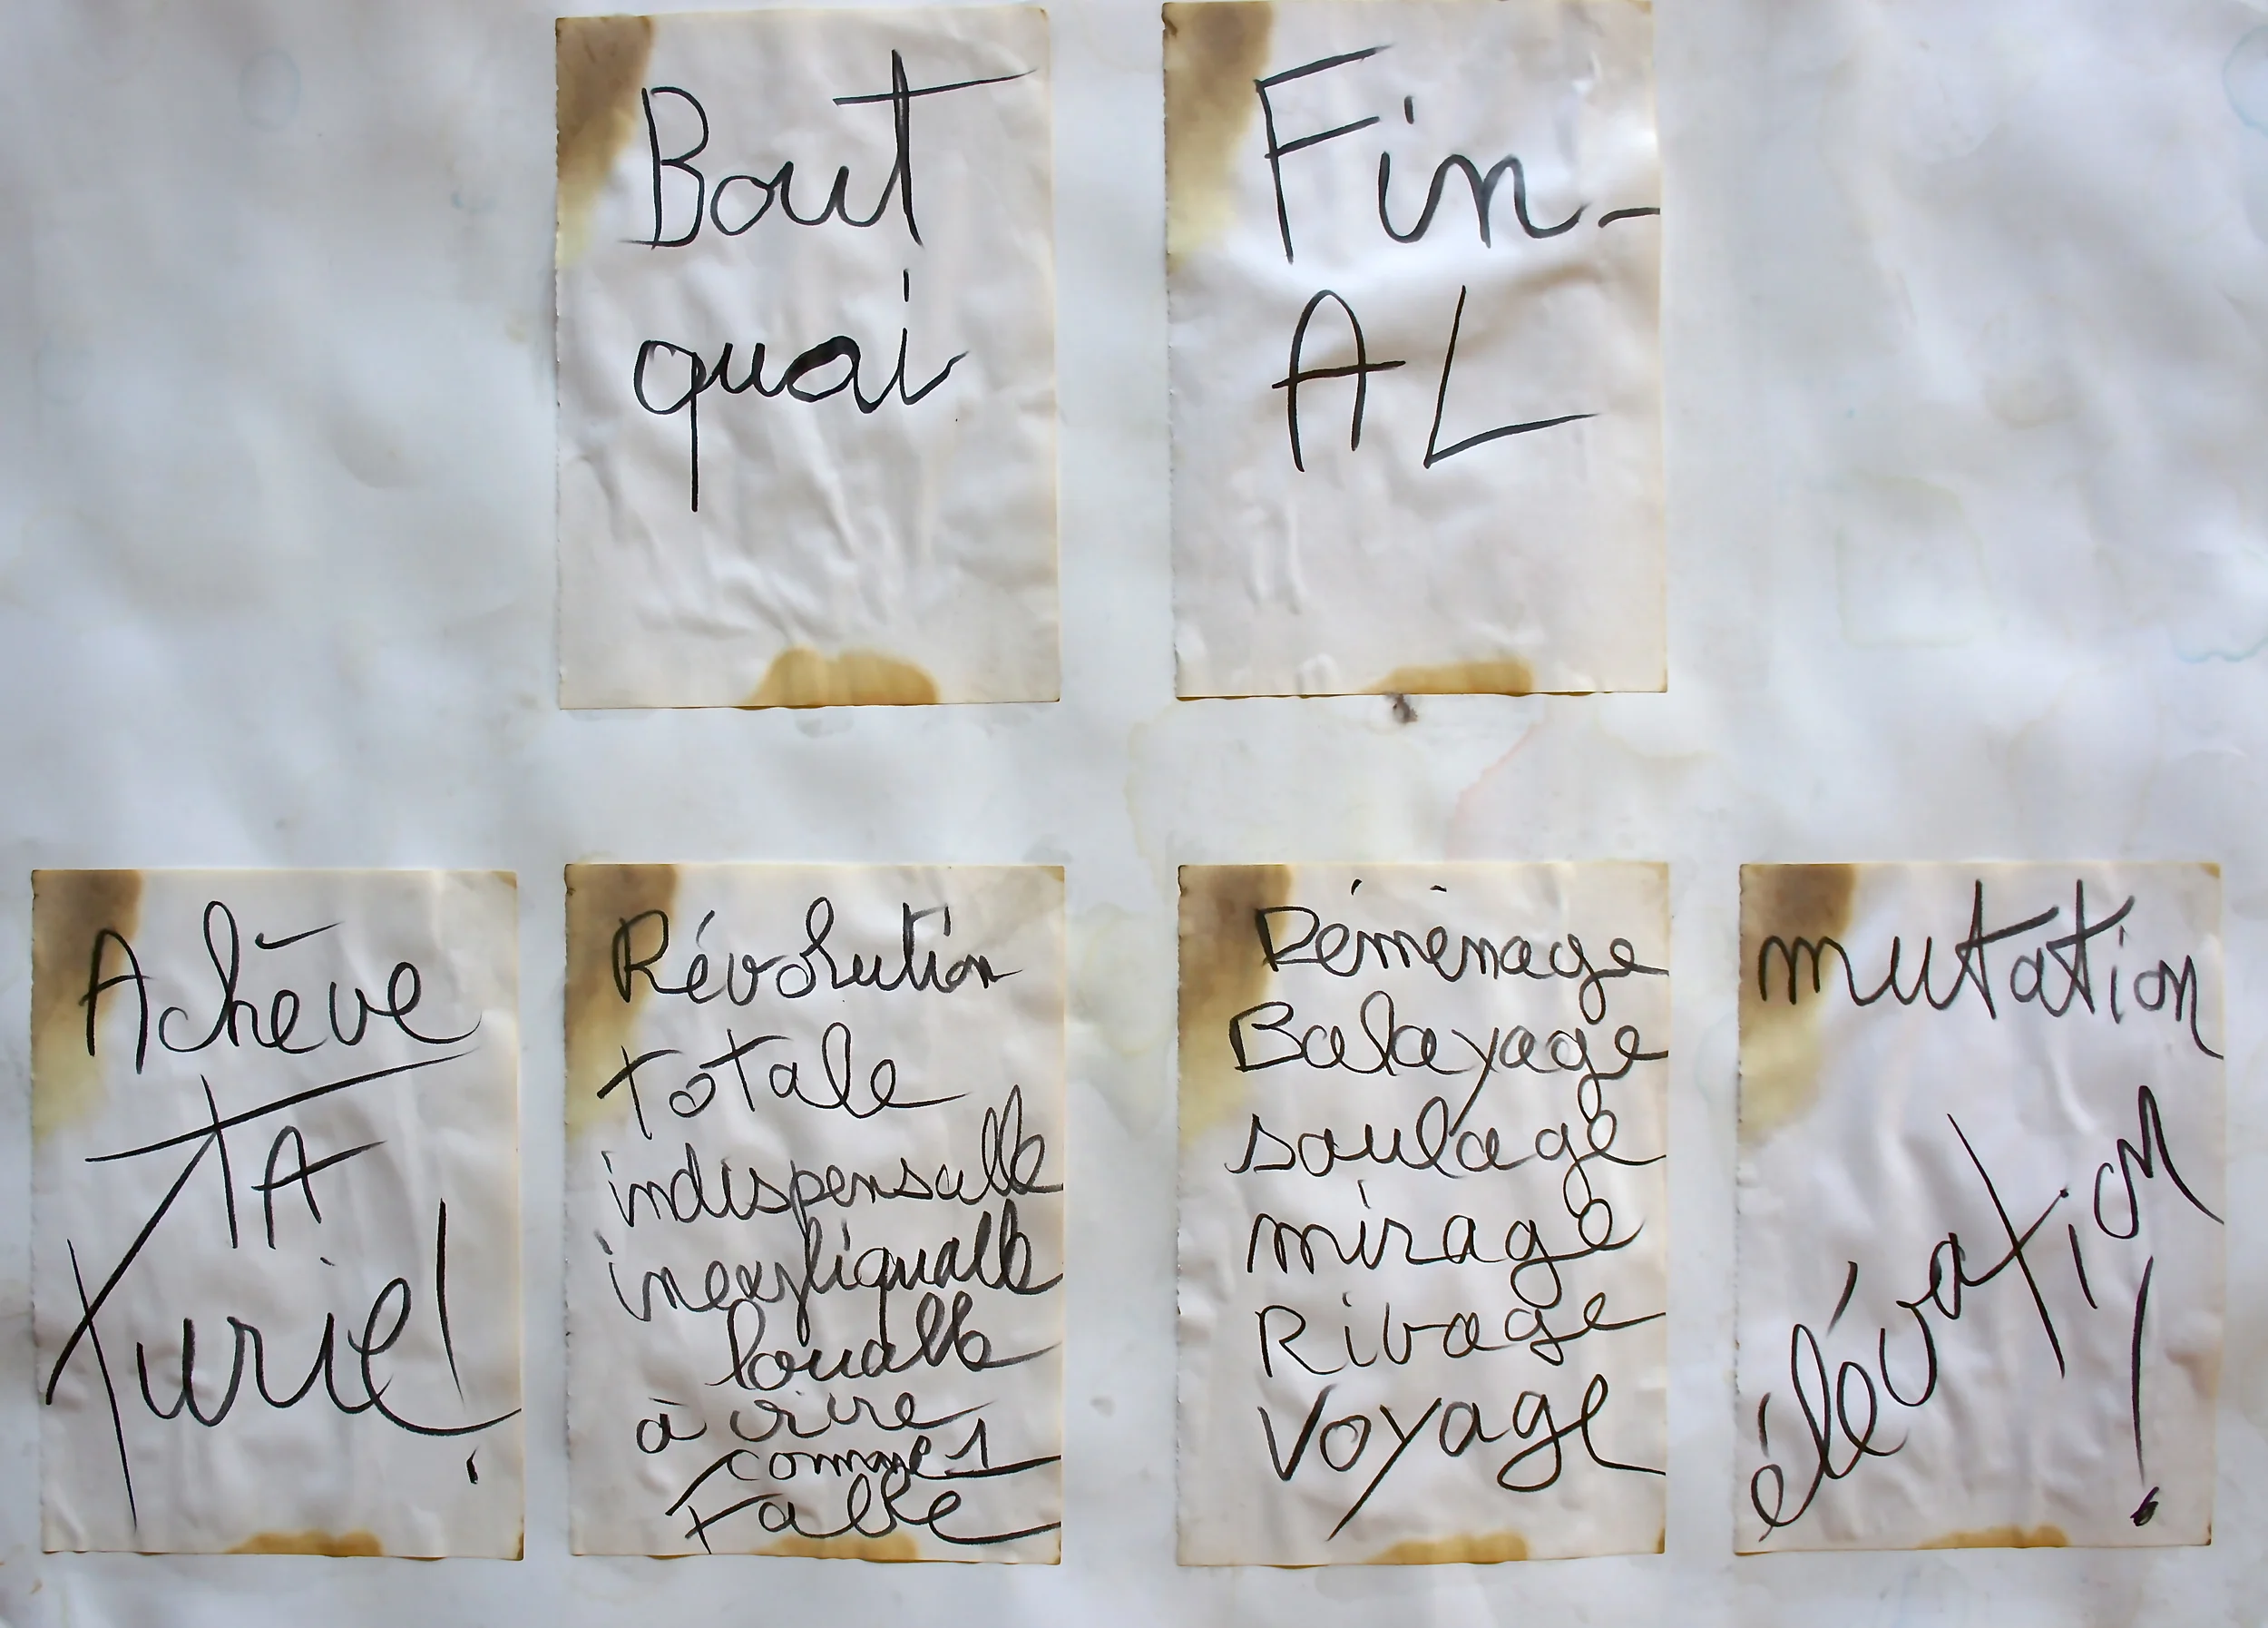 Bout
quai
Fin-
AL
Achève
TA
Turie!
Révolution
totale
indispensable
inexpliquable
louable
à vivre
comme 1
Fable
Réménage
Balayage
soulage
mirage
Rivage
Voyage
mutation
élévation!